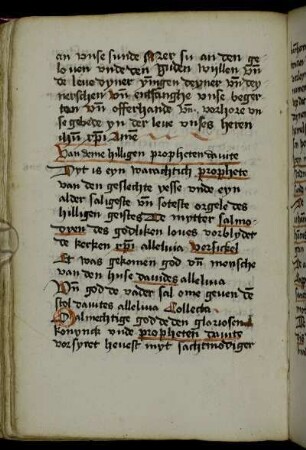 an vnse sunde Mer su an den ge
louen vnde den guden wyllen vn̄
de leue dyner ynnigen deyner vn̄ dey
nerschen vn̄ entfanghe vnse beger
ten vn̄ offerhande vn̄ vorhore vn
se gebede yn der leue vnses heren
ihū xpi̅ Amē
Van deme hilligen propheten dauite
Dyt is eyn warachtich prophete
van den geslechte yesse vnde eyn
alder saligeste vn̄ soteste orgele des
hilligen geistes De mytter salmo
dyen des godliken loues vorblydet
de kerken xpi̅ alleluia Versickel
Et was gekomen god vn̄ mensche
van den huse dauides alleluia
Vn̄ god de vader sal ome geuen de
stol dauites alleluia Collecta
Almechtige god de den gloriosen
konynck vnde propheten dauite
vorsyret heuest myt sachtmodiger